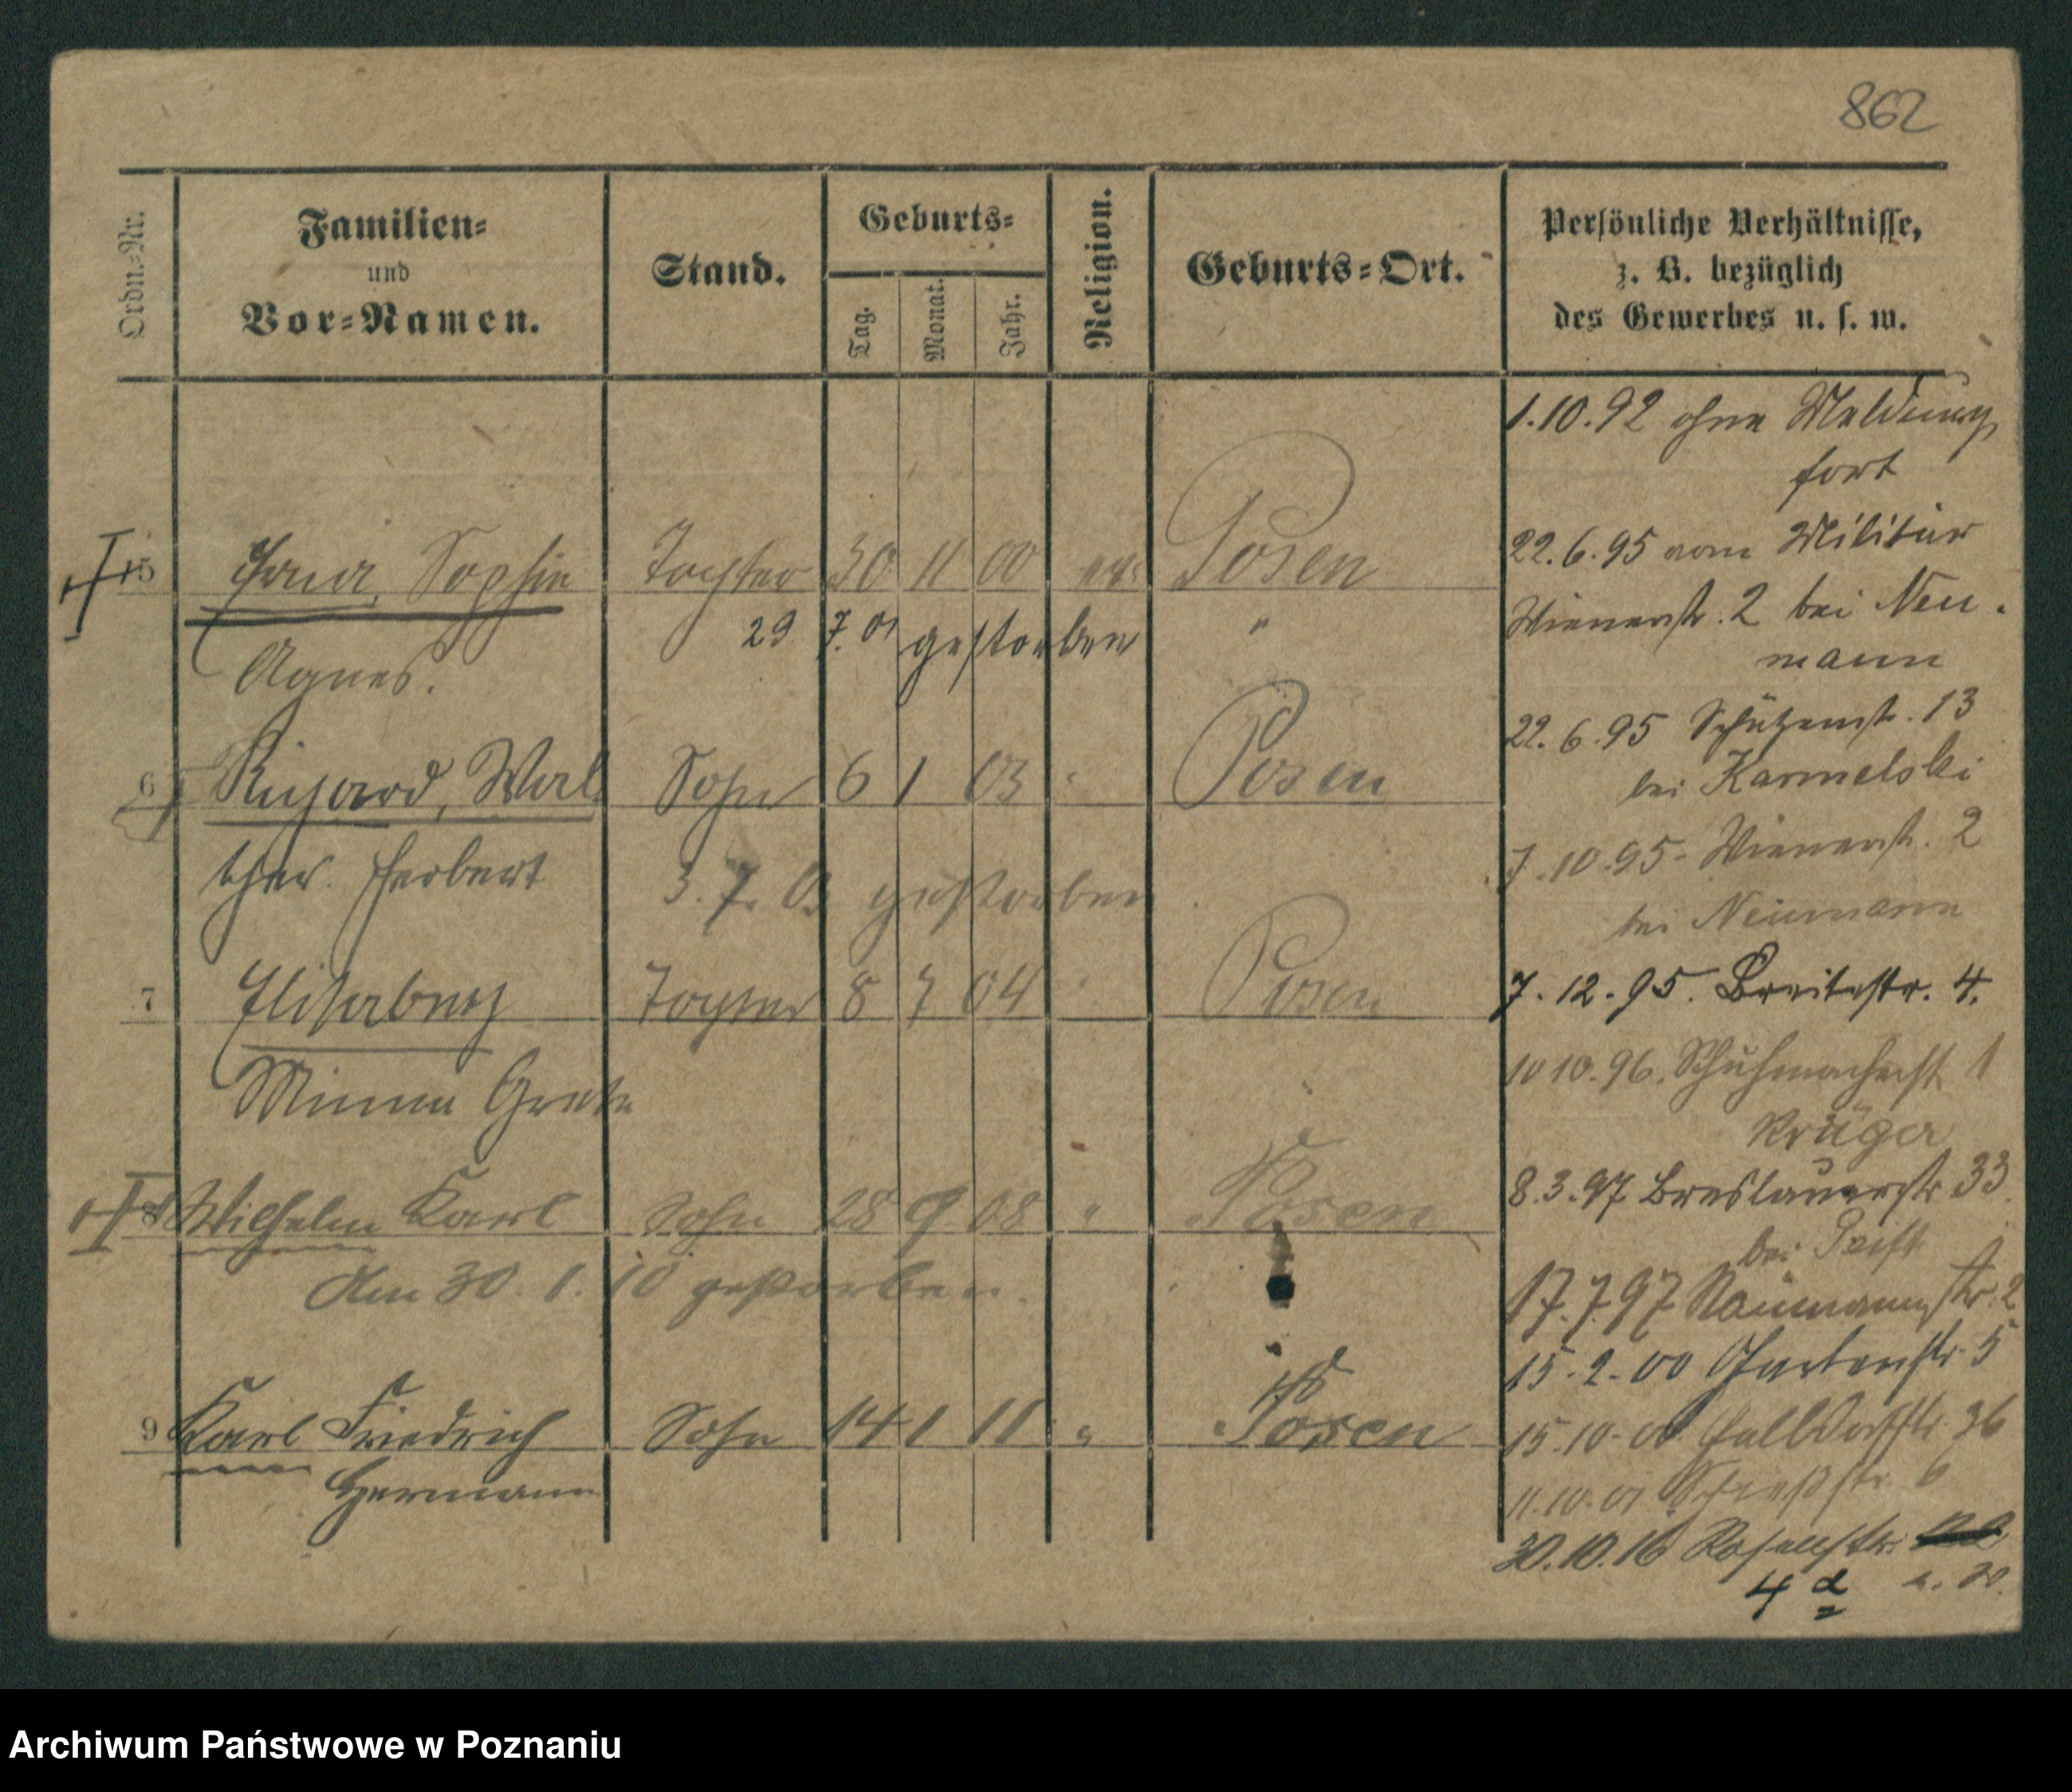 862
Ordn.-Nr.
Familien-
und
Vor-Namen.
Stand.
Geburts-
Tag.
Monat.
Jahr.
Religion.
Geburts-Ort.
Persönliche Verhältnisse,
z. B. bezüglich
des Gewerbes u. s. w.
5 Sophie Tochter 30 11 00 ev. Posen
29. 7. 01 gestorben "
Agnes.
6 Richard, Wal Sohn 6 1 03 " Posen
ther. Herbert
3. 7. gestorben
7 Elisabeth Tochter 8 7 04 " Posen
Minna Grete
8 Wilhelm Karl Sohn 28 9 08 " Posen
Am 30. 1. 10 gestorben.
9 Karl Friedrich Sohn 14 1 11 " Posen
Hermann
1.10.92 ohne Meldung
fort
22.6.95 vom Militär
Wienerstr. 2 bei Neu-
mann
22.6.95 Schützenstr. 13
bei Karmelski
7.10.95- Wienerstr. 2
bei Neumann
7.12.95. Breitestr. 4.
10 10.96. Schuhmacherst 1
Krüger
8.3.97 Breslauerstr 33
bei
17.7.97 Naumannstr. 2
15.2.00 Gartenstr. 5
15.10.00 36
11.10.01 Schießstr. 6
30.10.16 Rosenstr.
4 a